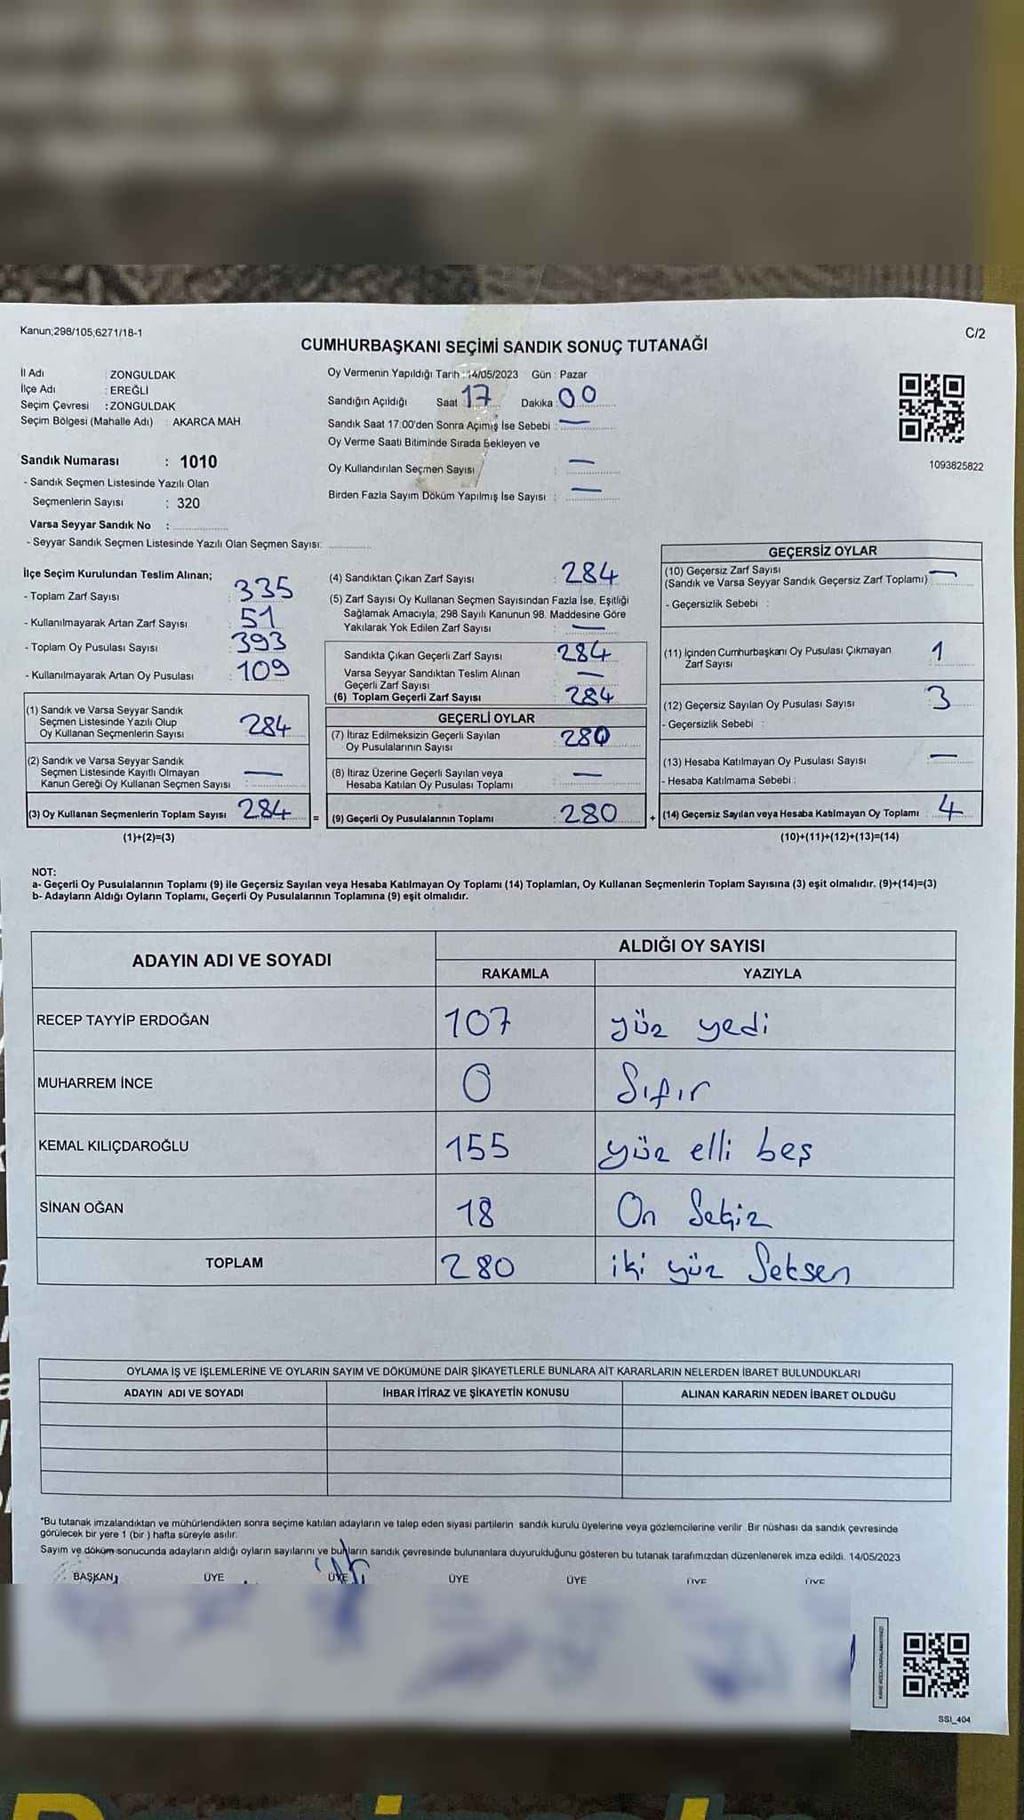 Kanun;298/105,6271/18-1
C/2
CUMHURBAŞKANI SEÇİMİ SANDIK SONUÇ TUTANAĞI
İl Adı : ZONGULDAK
İlçe Adı : EREĞLİ
Seçim Çevresi : ZONGULDAK
Seçim Bölgesi (Mahalle Adı) : AKARCA MAH
Sandık Numarası : 1010
- Sandık Seçmen Listesinde Yazılı Olan
Seçmenlerin Sayısı : 320
Varsa Seyyar Sandık No :
- Seyyar Sandık Seçmen Listesinde Yazılı Olan Seçmen Sayısı:
Oy Vermenin Yapıldığı Tarih : 14/05/2023 Gün : Pazar
Sandığın Açıldığı Saat 17 Dakika : 00
Sandık Saat 17:00'den Sonra Açılmış İse Sebebi : —
Oy Verme Saati Bitiminde Sırada Bekleyen ve
Oy Kullandırılan Seçmen Sayısı : —
Birden Fazla Sayım Döküm Yapılmış İse Sayısı : —
1093825822
İlçe Seçim Kurulundan Teslim Alınan;
- Toplam Zarf Sayısı : 335
- Kullanılmayarak Artan Zarf Sayısı : 51
- Toplam Oy Pusulası Sayısı : 393
- Kullanılmayarak Artan Oy Pusulası : 109
(1) Sandık ve Varsa Seyyar Sandık
Seçmen Listesinde Yazılı Olup
Oy Kullanan Seçmenlerin Sayısı : 284
(2) Sandık ve Varsa Seyyar Sandık
Seçmen Listesinde Kayıtlı Olmayan
Kanun Gereği Oy Kullanan Seçmen Sayısı : —
(3) Oy Kullanan Seçmenlerin Toplam Sayısı : 284
(1)+(2)=(3)
(4) Sandıktan Çıkan Zarf Sayısı : 284
(5) Zarf Sayısı Oy Kullanan Seçmen Sayısından Fazla İse, Eşitliği
Sağlamak Amacıyla, 298 Sayılı Kanunun 98. Maddesine Göre
Yakılarak Yok Edilen Zarf Sayısı : —
Sandıkta Çıkan Geçerli Zarf Sayısı : 284
Varsa Seyyar Sandıktan Teslim Alınan
Geçerli Zarf Sayısı : —
(6) Toplam Geçerli Zarf Sayısı : 284
GEÇERLİ OYLAR
(7) İtiraz Edilmeksizin Geçerli Sayılan
Oy Pusulalarının Sayısı : 280
(8) İtiraz Üzerine Geçerli Sayılan veya
Hesaba Katılan Oy Pusulası Toplamı : —
= (9) Geçerli Oy Pusulalarının Toplamı : 280
GEÇERSİZ OYLAR
(10) Geçersiz Zarf Sayısı
(Sandık ve Varsa Seyyar Sandık Geçersiz Zarf Toplamı) : —
- Geçersizlik Sebebi :
(11) İçinden Cumhurbaşkanı Oy Pusulası Çıkmayan
Zarf Sayısı : 1
(12) Geçersiz Sayılan Oy Pusulası Sayısı : 3
- Geçersizlik Sebebi :
(13) Hesaba Katılmayan Oy Pusulası Sayısı : —
- Hesaba Katılmama Sebebi :
+ (14) Geçersiz Sayılan veya Hesaba Katılmayan Oy Toplamı : 4
(10)+(11)+(12)+(13)=(14)
NOT:
a- Geçerli Oy Pusulalarının Toplamı (9) ile Geçersiz Sayılan veya Hesaba Katılmayan Oy Toplamı (14) Toplamları, Oy Kullanan Seçmenlerin Toplam Sayısına (3) eşit olmalıdır. (9)+(14)=(3)
b- Adayların Aldığı Oyların Toplamı, Geçerli Oy Pusulalarının Toplamına (9) eşit olmalıdır.
ADAYIN ADI VE SOYADI ALDIĞI OY SAYISI
RAKAMLA YAZIYLA
RECEP TAYYİP ERDOĞAN 107 yüz yedi
MUHARREM İNCE 0 Sıfır
KEMAL KILIÇDAROĞLU 155 yüz elli beş
SİNAN OĞAN 18 On Sekiz
TOPLAM 280 iki yüz Seksen
OYLAMA İŞ VE İŞLEMLERİNE VE OYLARIN SAYIM VE DÖKÜMÜNE DAİR ŞİKAYETLERLE BUNLARA AİT KARARLARIN NELERDEN İBARET BULUNDUKLARI
ADAYIN ADI VE SOYADI İHBAR İTİRAZ VE ŞİKAYETİN KONUSU ALINAN KARARIN NEDEN İBARET OLDUĞU
*Bu tutanak imzalandıktan ve mühürlendikten sonra seçime katılan adayların ve talep eden siyasi partilerin sandık kurulu üyelerine veya gözlemcilerine verilir. Bir nüshası da sandık çevresinde
görülecek bir yere 1 (bir ) hafta süreyle asılır.
Sayım ve döküm sonucunda adayların aldığı oyların sayılarını ve bunların sandık çevresinde bulunanlara duyurulduğunu gösteren bu tutanak tarafımızdan düzenlenerek imza edildi. 14/05/2023
BAŞKAN ÜYE ÜYE ÜYE ÜYE ÜYE ÜYE
SSI_404